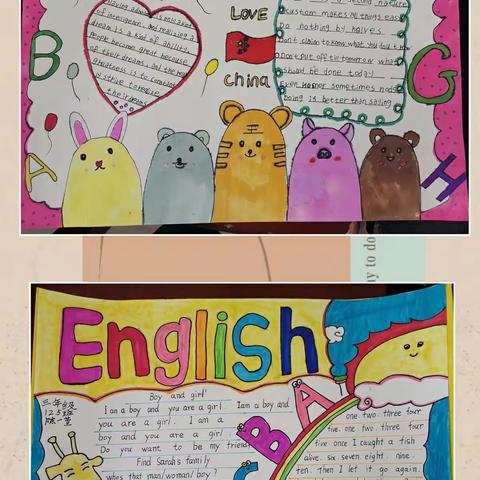 having
of intelligence, and realizing a
dream is a kind of ability,
people become great because
of their dreams, and the
greatness is to
strive to realize
their dreams
LOVE
China
second nature
Custom makes all things easy
Do nothing by halves
Don't claim to know what you don't know
Don't put off till tomorrow what
should be done today
Even Homer sometimes nods
Doing is better than saying
B
A
G
H
ay to do
English
三年级
125班
Boy and girl
I am a boy and you are a girl. I am a boy and
you are a girl. I am a
boy and you are a girl.
Do you want to be my friend
Find Sarah's family
who's that man/woman/boy?
B
A
one. two. three. four
five. one. two. three. four
five. once I caught a fish
alive. six. seven. eight. nine.
ten. then I let it go again.